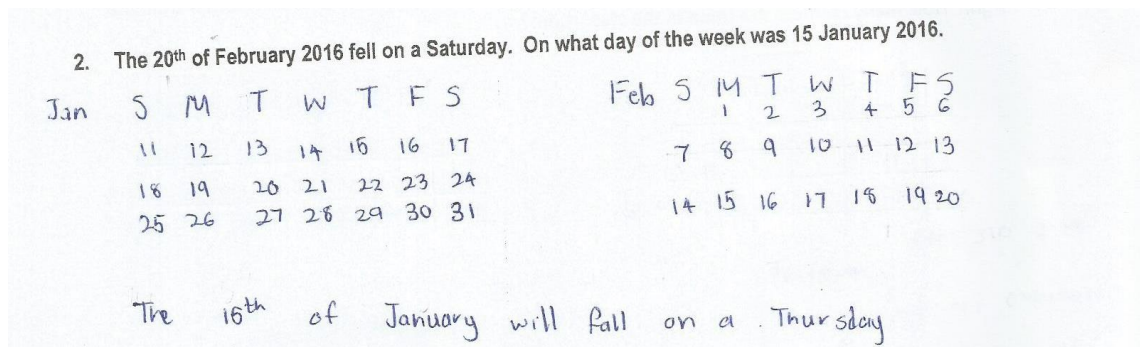 2. The 20th of February 2016 fell on a Saturday. On what day of the week was 15 January 2016.
Jan S M T W T F S
11 12 13 14 15 16 17
18 19 20 21 22 23 24
25 26 27 28 29 30 31
Feb S M T W T F S
1 2 3 4 5 6
7 8 9 10 11 12 13
14 15 16 17 18 19 20
The 15th of January will fall on a Thursday